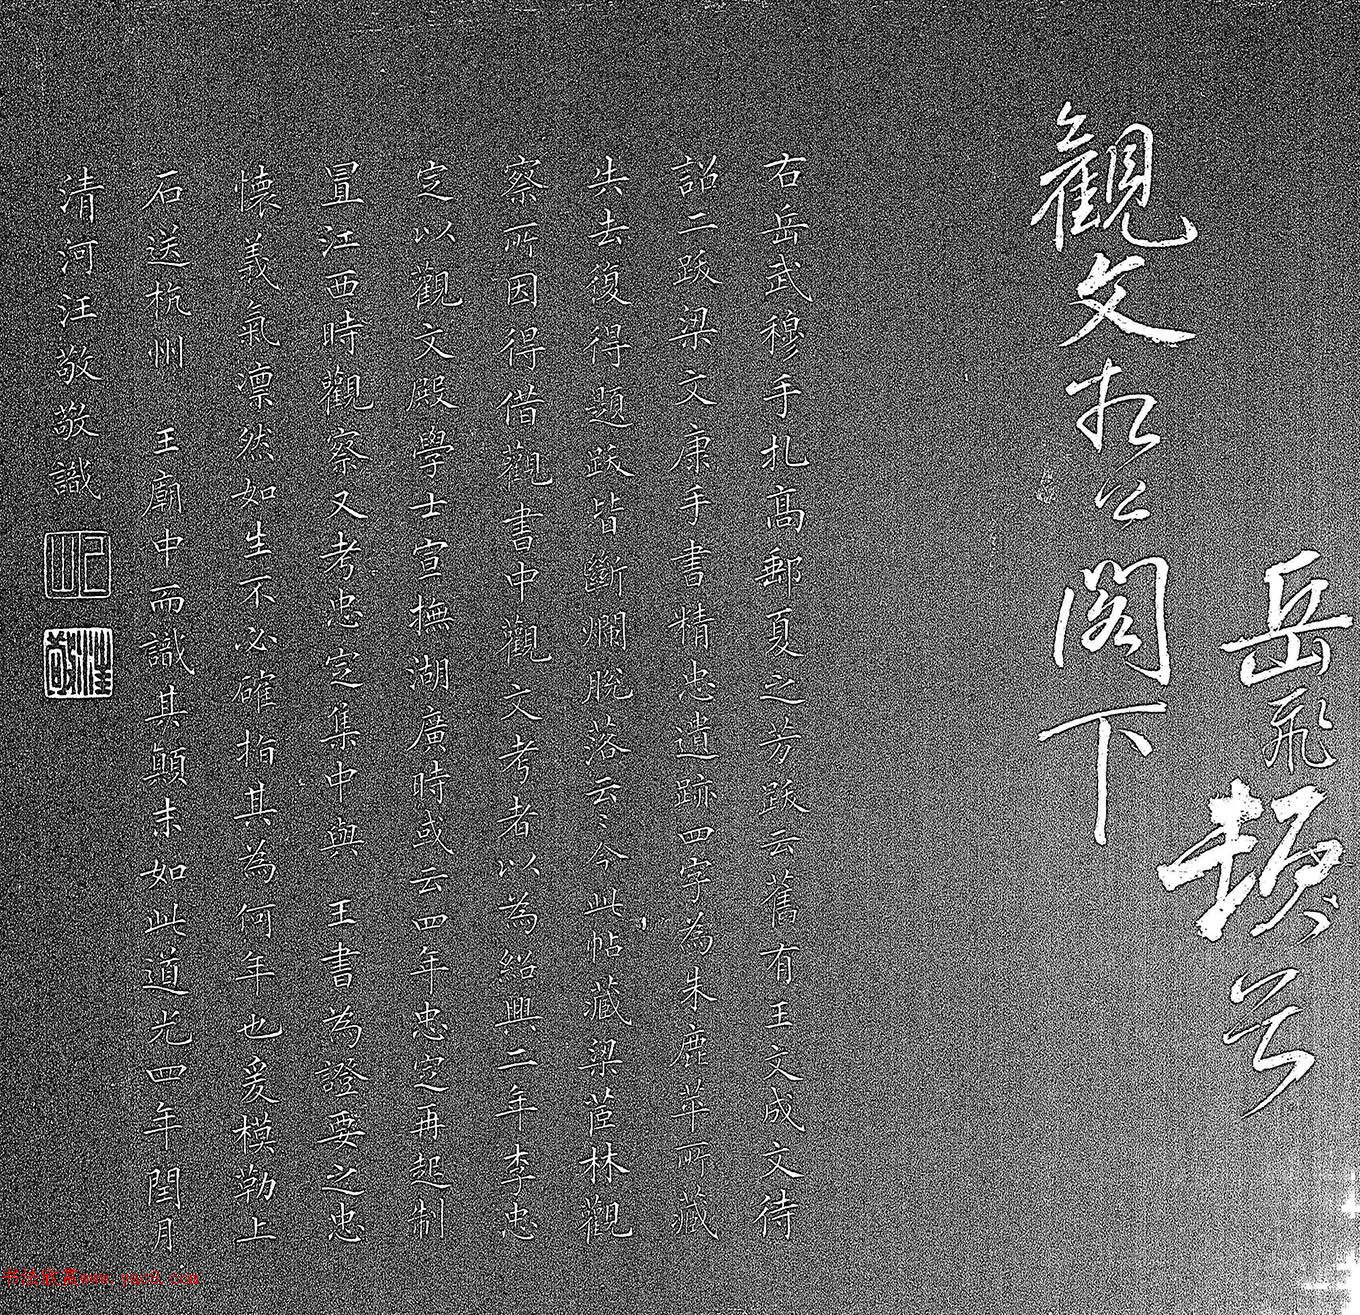 岳飛頓首
觀文相公閣下
右岳武穆手札高郵夏之芳跋云舊有王文成文待
詔二跋梁文康手書精忠遺跡四字為朱鹿苹所藏
失去復得題跋皆斷爛脫落云今此帖藏梁茝林觀
察所因得借觀書中觀文考者以為紹興二年李忠
定以觀文殿學士宣撫湖廣時或云四年忠定再起制
置江西時觀察又考忠定集中與王書為證要之忠
懷義氣凛然如生不必確指其為何年也爰模勒上
石送杭州王廟中而識其顛末如此道光四年閏月
清河汪敬敬識